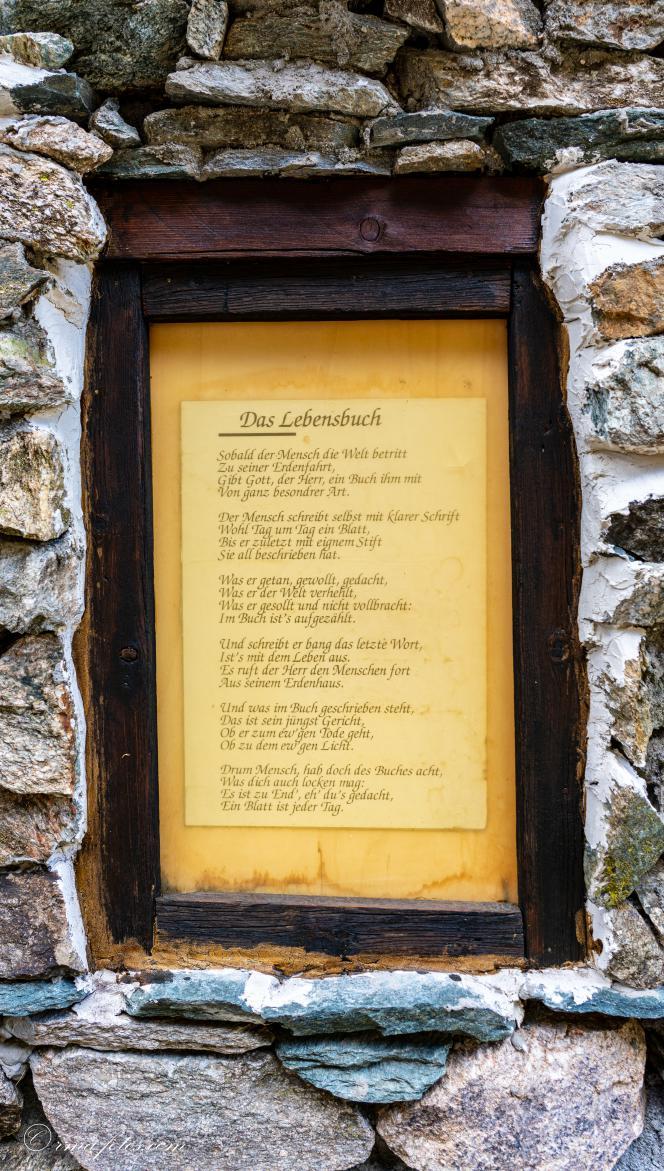 Das Lebensbuch
Sobald der Mensch die Welt betritt
Zu seiner Erdenfahrt,
Gibt Gott, der Herr, ein Buch ihm mit
Von ganz besondrer Art.
Der Mensch schreibt selbst mit klarer Schrift
Wohl Tag um Tag ein Blatt,
Bis er zuletzt mit eignem Stift
Sie all beschrieben hat.
Was er getan, gewollt, gedacht,
Was er der Welt verhehlt,
Was er gesollt und nicht vollbracht:
Im Buch ist's aufgezählt.
Und schreibt er bang das letzte Wort,
Ist's mit dem Leben aus.
Es ruft der Herr den Menschen fort
Aus seinem Erdenhaus.
Und was im Buch geschrieben steht,
Das ist sein jüngst Gericht,
Ob er zum ew'gen Tode geht,
Ob zu dem ew'gen Licht.
Drum Mensch, hab doch des Buches acht,
Was dich auch locken mag:
Es ist zu End', eh' du's gedacht,
Ein Blatt ist jeder Tag.